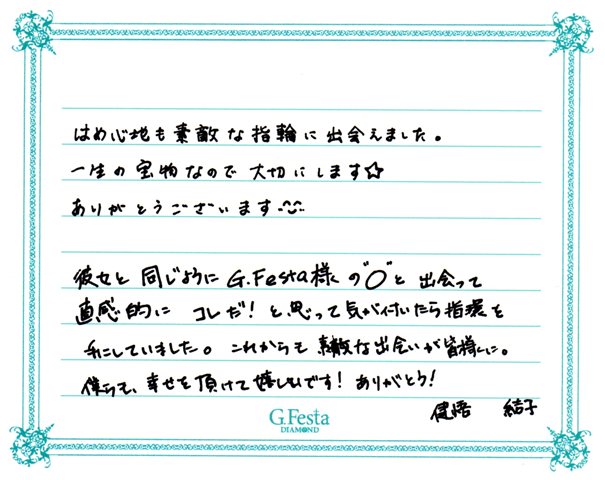 はめ心地も素敵な指輪に出会えました。
一生の宝物なので大切にします☆
ありがとうございます^^
彼女と同じようにG.Festa様の"○"と出会って
直感的に コレだ!と思って気が付いたら指環を
手にしていました。これからも素敵な出会いが皆様に。
僕らも、幸せを頂けて嬉しいです!ありがとう!
健悟 結子
G.Festa
DIAMOND